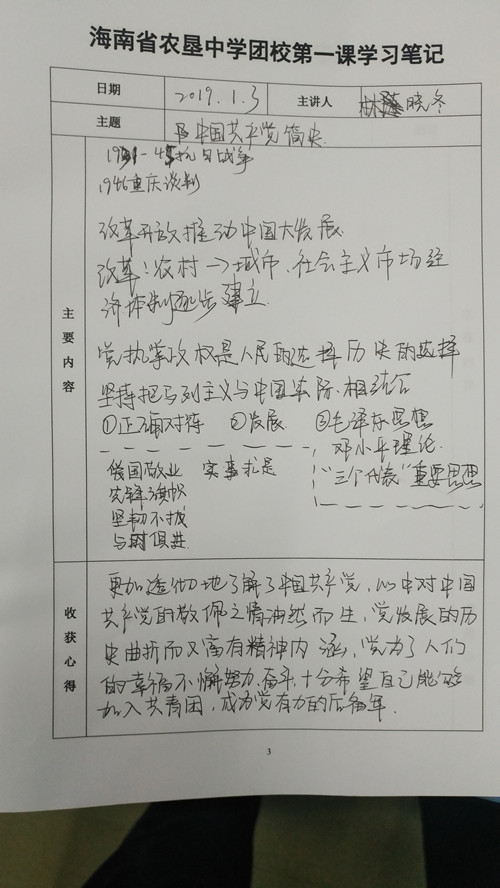 海南省农垦中学团校第一课学习笔记
日期 2019.1.3 主讲人 林晓冬
主题 中国共产党简史
主要内容
1931-45抗日战争
1946重庆谈判
改革开放推动中国大发展
改革:农村→城市、社会主义市场经
济体制逐步建立.
党执掌政权是人民的选择历史的选择
坚持把马列主义与中国实际相结合
①正确对待 ②发展 ③毛泽东思想
邓小平理论
爱国敬业 实事求是 "三个代表"重要思想
先锋旗帜
坚韧不拔
与时俱进
收获心得
更加透彻地了解了中国共产党,心中对中国
共产党的敬佩之情油然而生,党发展的历
史曲折而又富有精神内涵,党为了人们
的幸福不懈努力,奋斗,十分希望自己能够
加入共青团,成为党有力的后备军.
3